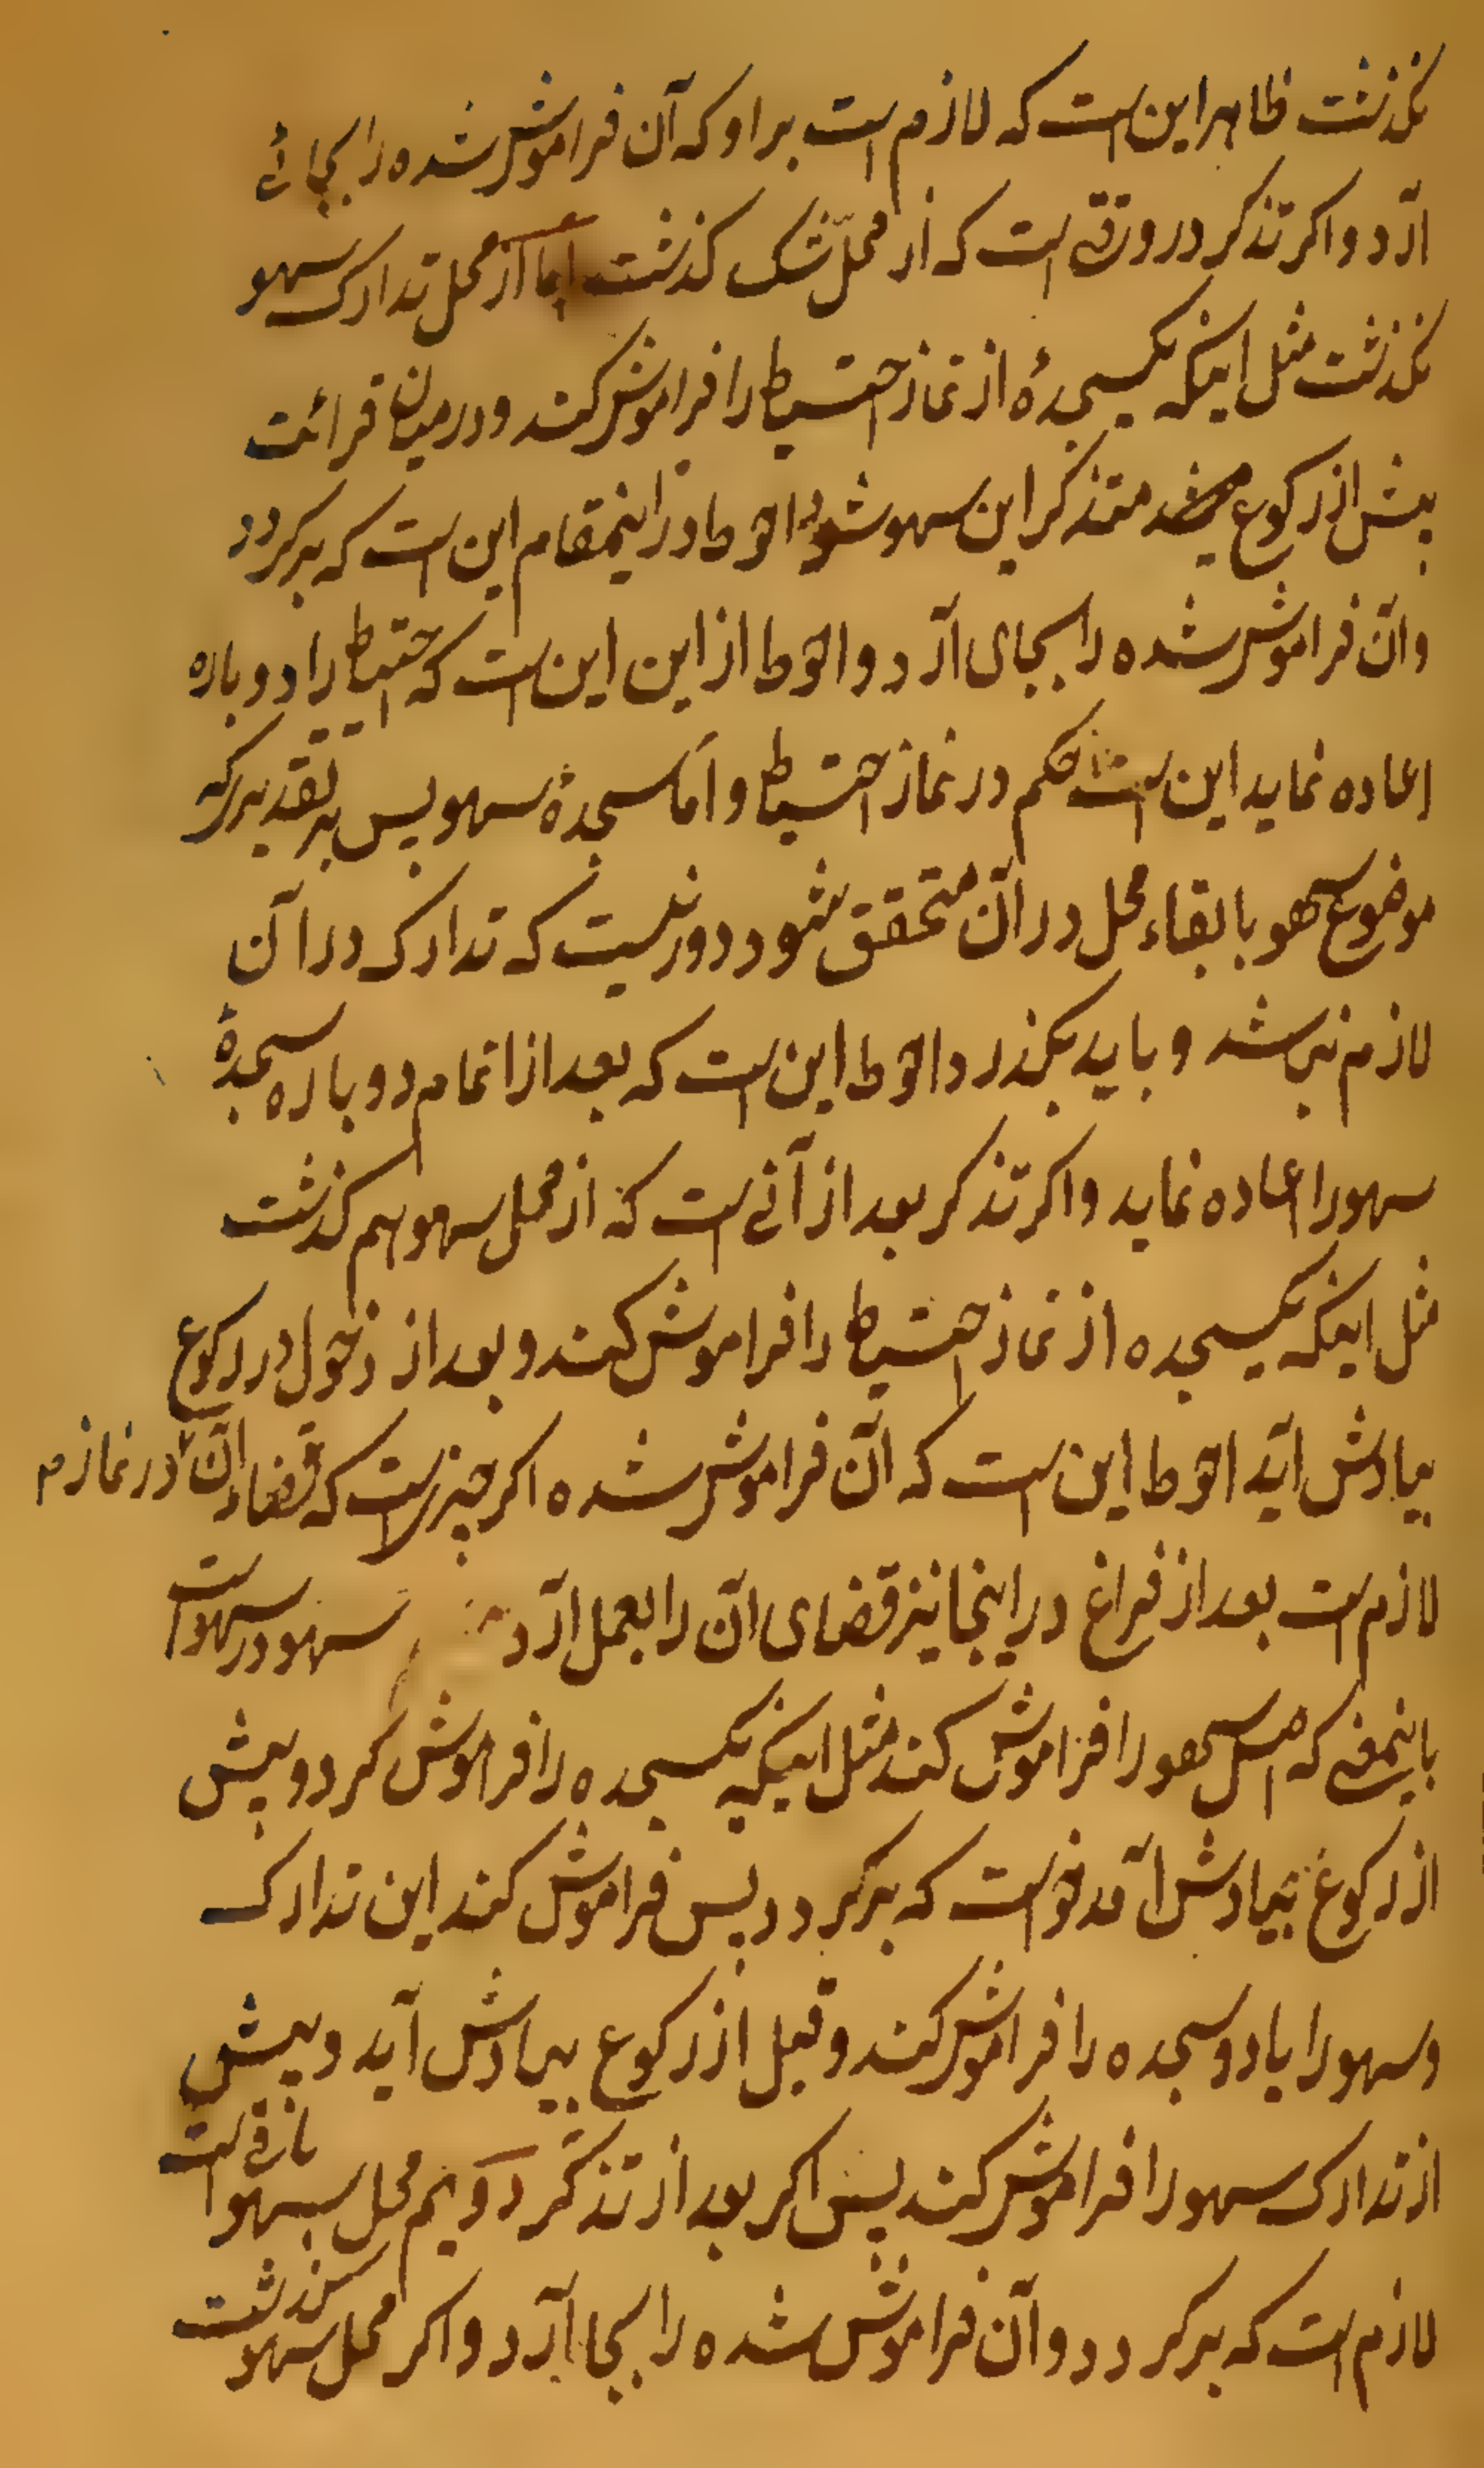 نگذشت ظاهر این است که لازم است بر او که آن فراموش شده را بجائی
آرد و اکر تذکر در وقتی است که از محلّ شک کذشت اما از محل تدارک سهو
نکذشت مثل اینکه یکسجدهٔ از نماز احتیاط را فراموش کند و در میان قرائت
پیش از رکوع متذکر این سهو شود احوط در اینمقام این است که برکردد
و آن فراموش شده را بجای آرد و احوط از این این است که احتیاط را دوباره
اعاده نماید این است حکم در نماز احتیاط و امّا سجدهٔ سهو پس بر تقدیریکه
موضوع سهو با بقاء محل در آن متحقق شود دور نیست که تدارک در آن
لازم نباشد و باید بکذرد و احوط این است که بعد از اتمام دوباره سجدهٔ
سهو را اعاده نماید و اکر تذکر بعد از آنی است که از محل سهو هم کذشت
مثل اینکه یکسجده از نماز احتیاط را فراموش کند و بعد از دخول در رکوع
بیادش آید احوط این است که آن فراموش شده اکر چیزیست که قضاء آن در نماز م
لازم است بعد از فراغ در اینجا نیز قضای آن را بعمل آرد سهو در سهو است
باینمعنی که اصل سهو را فراموش کند مثل اینکه یکسجده را فراموش کرد و پیش
از رکوع بیادش آمد خواست که برکردد پس فراموش کند این تدارک
و سهو را یا دو سجده را فراموش کند و قبل از رکوع بیادش آید و پیش
از تدارک سهو را فراموش کند پس اکر بعد از تذکر دویم محل سهو باقی است
لازم است که برکردد و آن فراموش شده را بجا آرد و اکر محل سهو کذشت